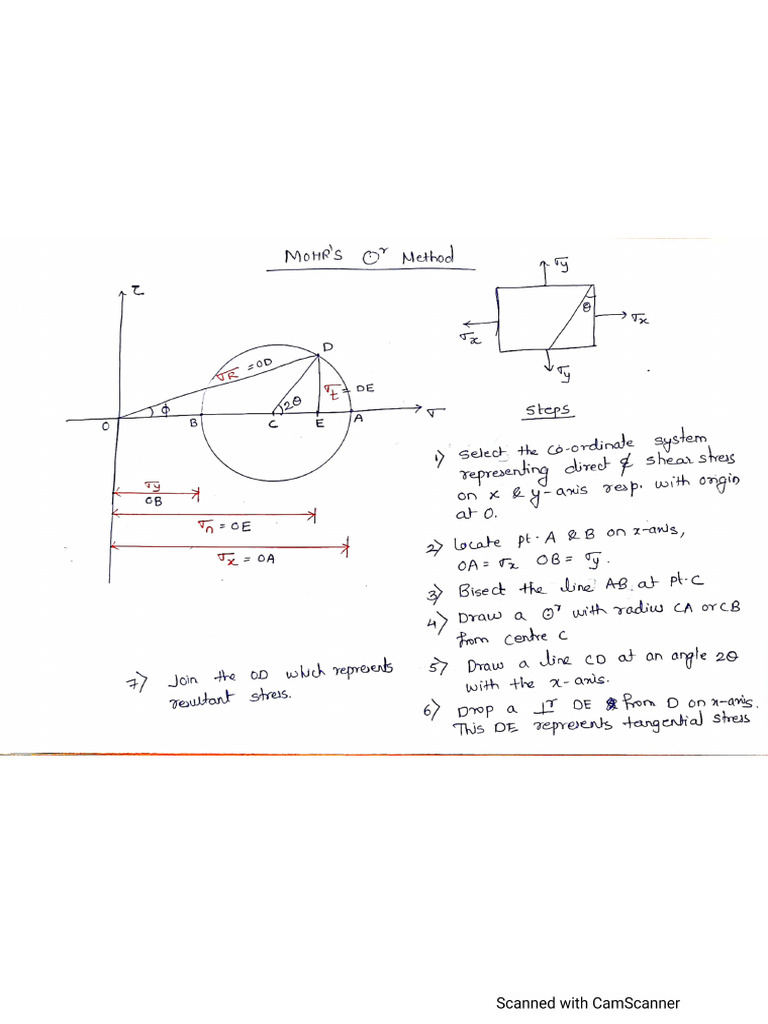 MOHR'S ⊙ʳ Method
τ
D
σR = OD
σt = DE
ϕ
2θ
O
B
C
E
A
σ
σy
OB
σn = OE
σx = OA
σy
θ
σx
σx
σy
Steps
1) Select the co-ordinate system
representing direct & shear stress
on x & y-axis resp. with origin
at O.
2) Locate pt. A & B on x-axis,
OA = σx OB = σy.
3) Bisect the line AB at pt. C
4) Draw a ⊙ʳ with radius CA or CB
from centre C
5) Draw a line CD at an angle 2θ
with the x-axis.
6) Drop a ⊥ʳ DE from D on x-axis.
This DE represents tangential stress
7) Join the OD which represents
resultant stress.
Scanned with CamScanner